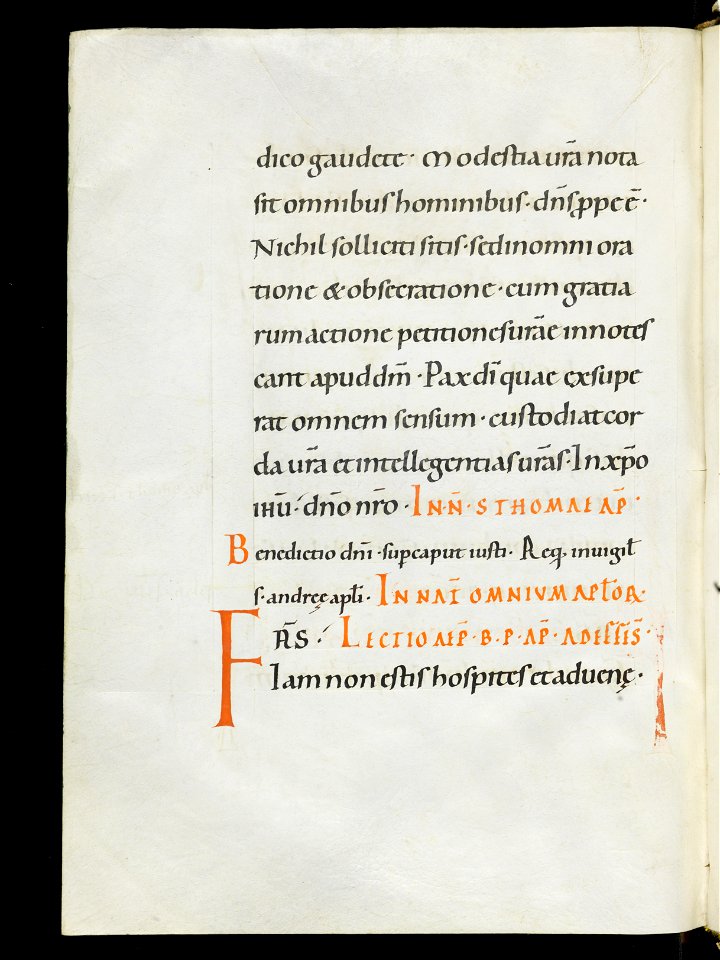 dico gaudete· Modestia ur̄a nota
sit omnibus hominibus· dn̄s ꝓpe ē·
Nichil solliciti sitis· sed in omni ora
tione & obsecratione· cum gratia
rum actione petitiones ur̄ae innotes
cant apud dm̄· Pax dī quae exsupe
rat omnem sensum· custodiat cor
da ur̄a et intellegentias ur̄as· In xp̄o
ihū· dn̄o nr̄o· IN N̄· S THOMAE AP̄·
Benedictio dn̄i· sup̄ caput iusti· Req̨. in uigil̄
s· andręę apl̄i· IN NAT̄ OMNIVM APL̄OR·
FRS̄· LECTIO AEP̄· B· P· AP̄· AD EFES̄·
Iam non estis hospites et aduenę·